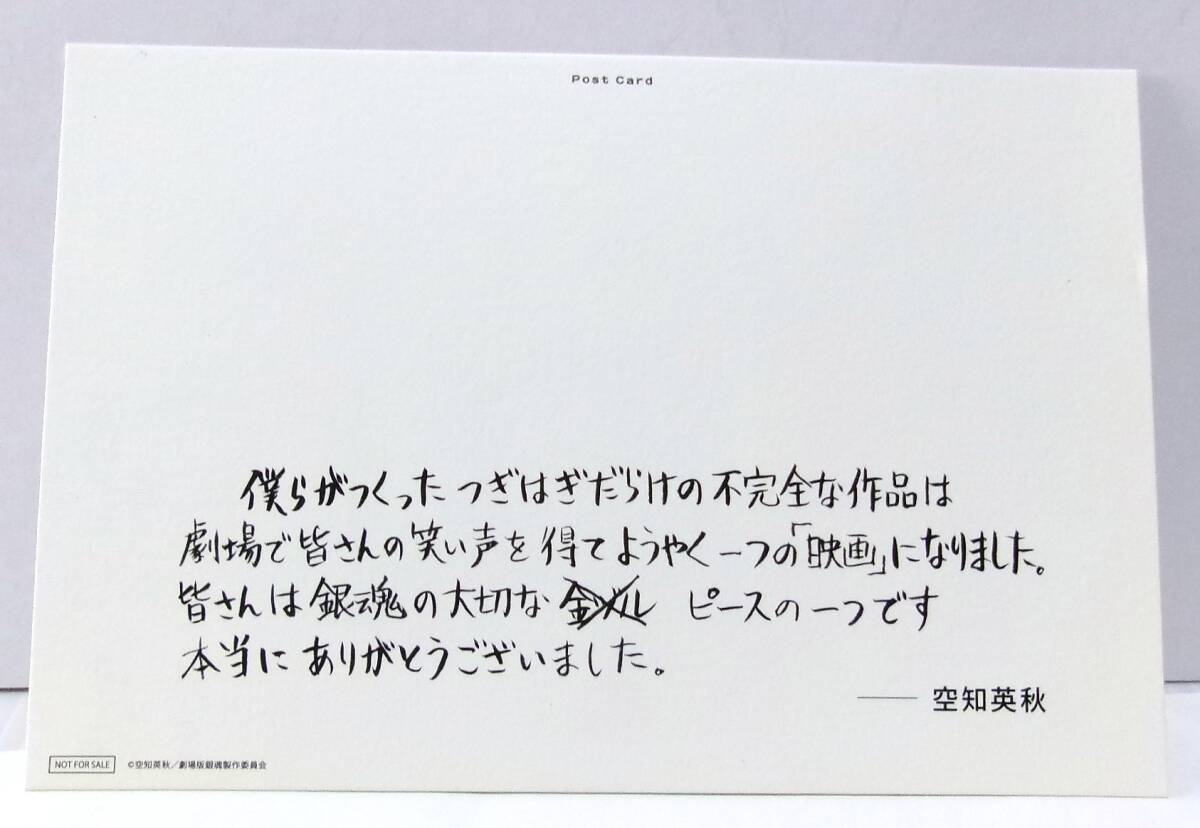 Post Card
僕らがつくった つぎはぎだらけの不完全な作品は
劇場で皆さんの笑い声を得てようやく一つの「映画」になりました。
皆さんは銀魂の大切な 金ヅル ピースの一つです
本当に ありがとうございました。
—— 空知英秋
NOT FOR SALE ©空知英秋/劇場版銀魂製作委員会